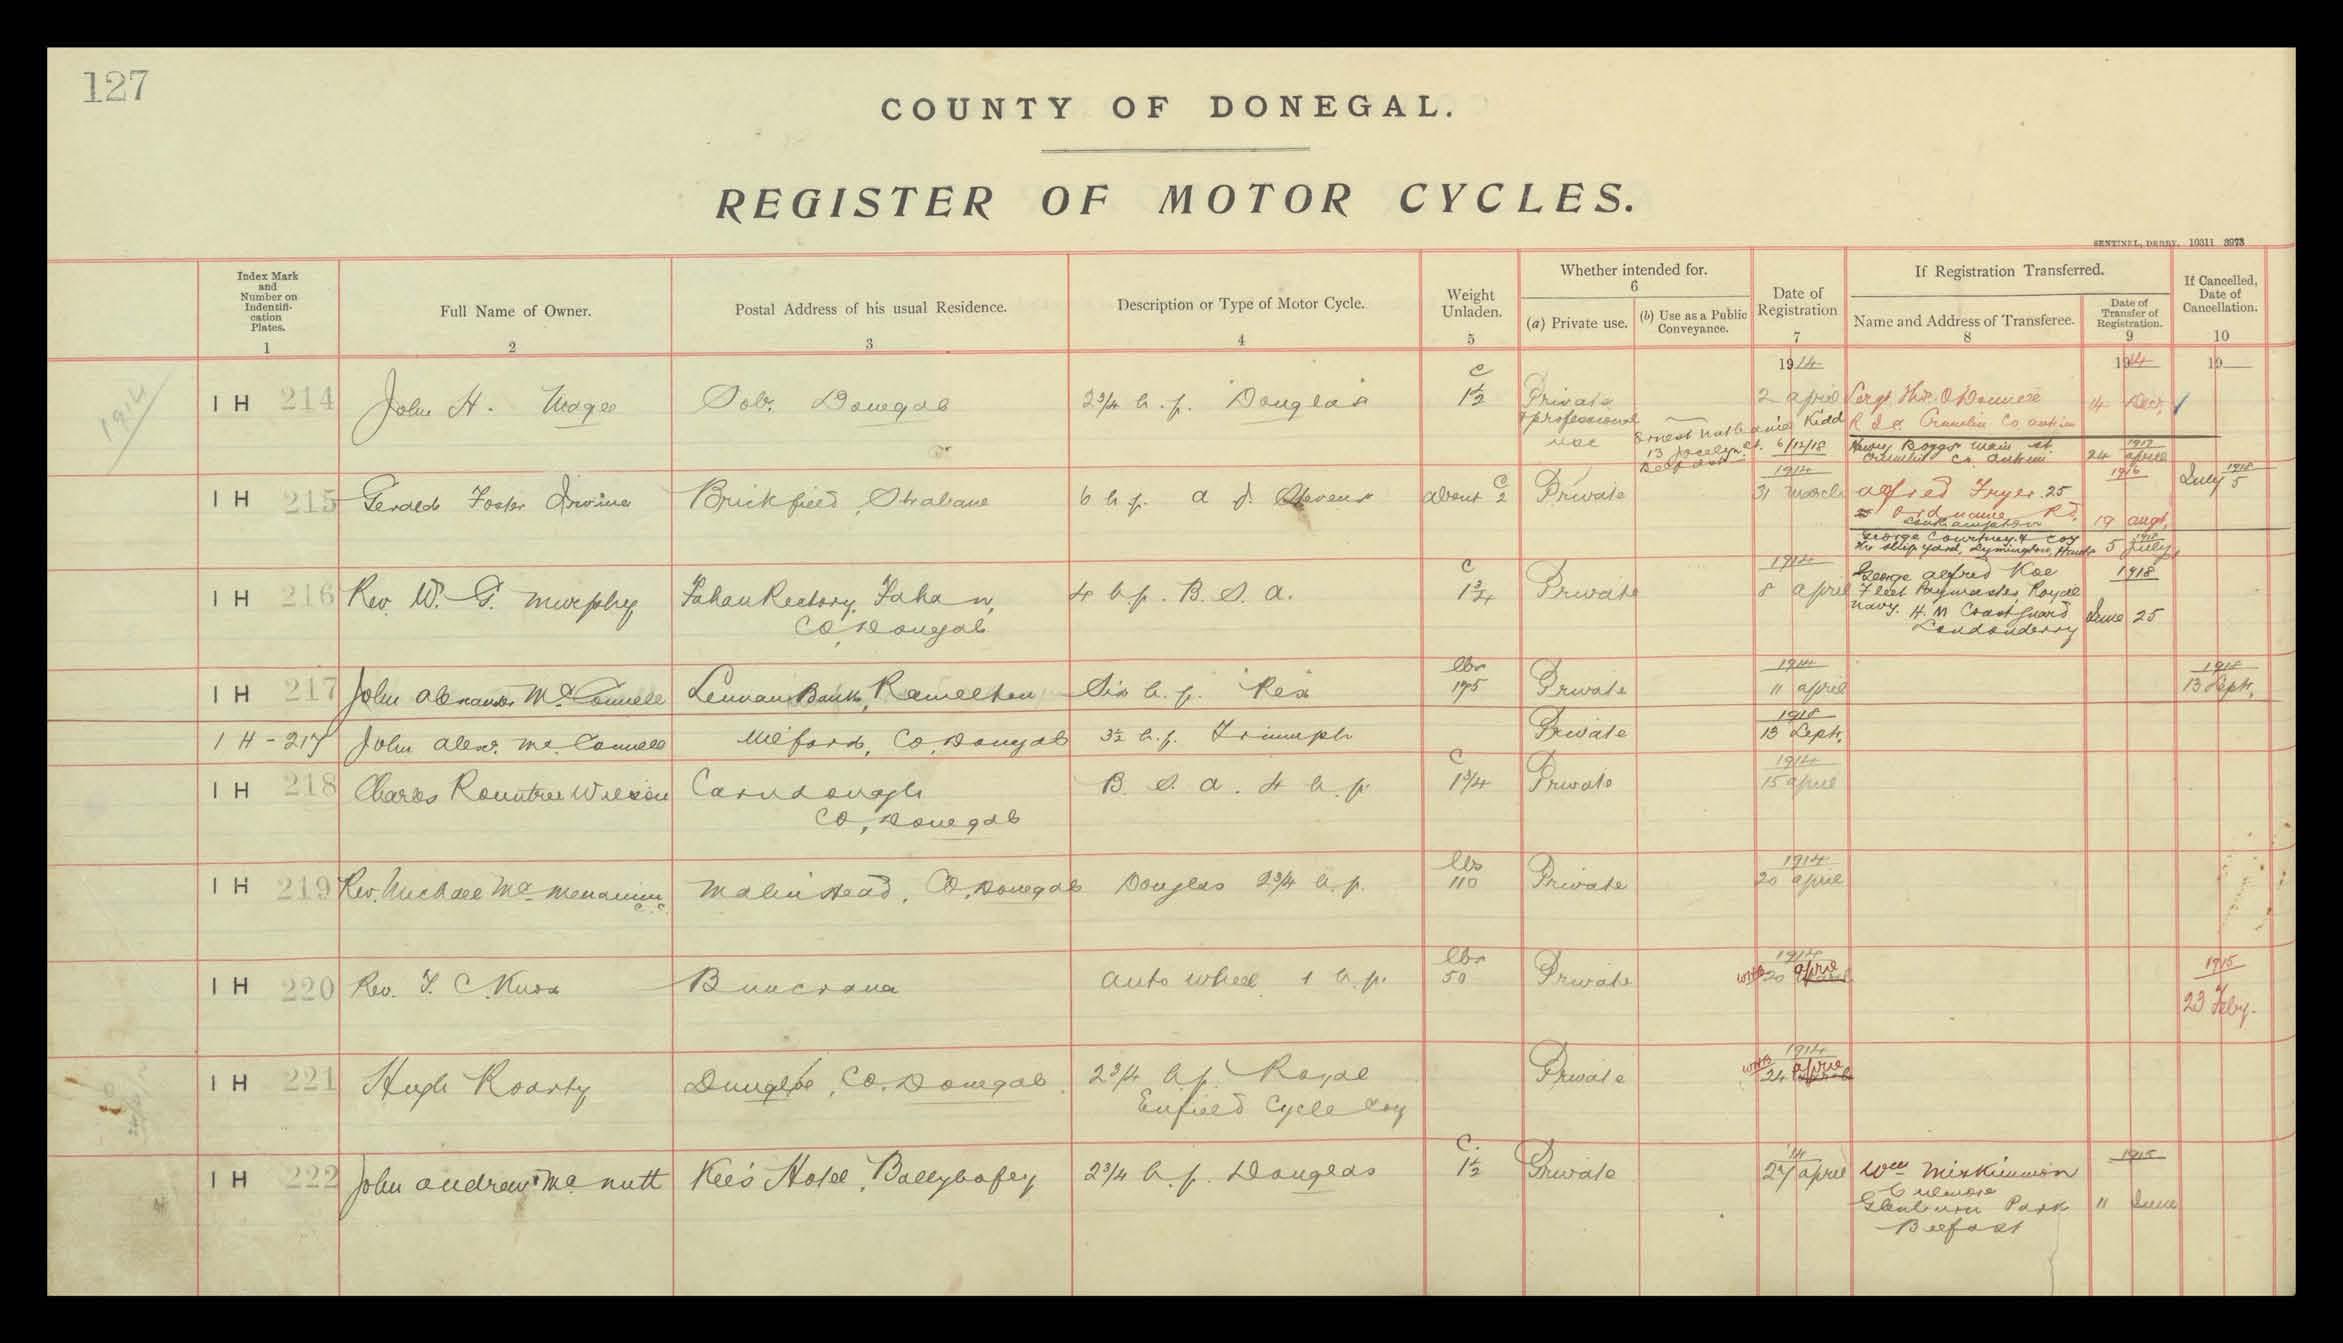 127
COUNTY OF DONEGAL.
REGISTER OF MOTOR CYCLES.
SENTINEL, DERRY. 10311 3973
Index Mark
and
Number on
Indentifi-
cation
Plates.
1
Full Name of Owner.
2
Postal Address of his usual Residence.
3
Description or Type of Motor Cycle.
4
Weight
Unladen.
5
Whether intended for.
6
(a) Private use.
(b) Use as a Public
Conveyance.
Date of
Registration
7
If Registration Transferred.
Name and Address of Transferee.
8
Date of
Transfer of
Registration.
9
If Cancelled,
Date of
Cancellation.
10
1914
C
1914
1914
19
IH 214 John H. Magee Donegal 2¾ h.p. Douglas 1½ Private 2 April Sergt. O'Donnell 14 Decr.
& professional
use
R I C Crumlin Co Antrim
Ernest Nathaniel Kidd
13 Jocelyn St. 6/12/18
Belfast
Henry Boggs Main St.
Crumlin Co. Antrim 24 April
1917
1914
1916
1918
IH 215 Gerald Foster Irvine Brickfield, Strabane 6 h.p. A J Stevens about 2 C Private 31 March Alfred Fryer 25 July 5
25 Ordnance Rd.
Southampton 19 Augt.
George Courtney & Coy 1918
The Ship Yard, Lymington, Hants 5 July
C
1914
1918
IH 216 Rev. W. G. Murphy Fahan Rectory, Fahan, 4 h.p. B. S. A. 1¾ Private 8 April George Alfred Koe
Co, Donegal
Fleet Paymaster, Royal
Navy. H. M Coast Guard
Londonderry June 25
lbs
1914
1918
IH 217 John Alexander McConnell Lennan Bank, Ramelton Six h.p. Rex 175 Private 11 April 13 Sept.
1918
IH - 217 John Alexr. McConnell Milford, Co, Donegal 3½ h.p. Triumph Private 13 Sept.
C
1914
IH 218 Charles Rountree Wilson Carndonagh B. S. A. 4 h.p. 1¾ Private 15 April
Co, Donegal
lbs
1914
IH 219 Rev. Michael McMenamin Malin Head, Co, Donegal Douglas 2¾ h.p. 110 Private 20 April
C.C.
lbs
1914
1915
IH 220 Rev. F. C. Knox Buncrana Auto wheel 1 h.p. 50 Private 20 April
23 Feby.
1914
IH 221 Hugh Roarty Dungloe, Co. Donegal 2¾ h.p. Royal Private 24 April
Enfield Cycle Coy
C.
'14
1915
IH 222 John Andrew McNutt Kee's Hotel, Ballybofey 2¾ h.p. Douglas 1½ Private 27 April Wm Miskimmon
Culmore
Glenburn Park 11 June
Belfast